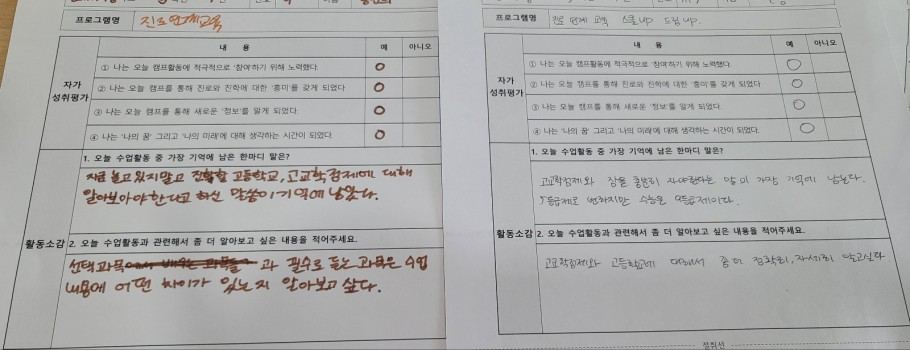 프로그램명 진로연계교육
내 용 예 아니오
자가
성취평가
① 나는 오늘 캠프활동에 적극적으로 '참여'하기 위해 노력했다.
② 나는 오늘 캠프를 통해 진로와 진학에 대한 '흥미'를 갖게 되었다
③ 나는 오늘 캠프를 통해 새로운 '정보'를 알게 되었다.
④ 나는 '나의 꿈' 그리고 '나의 미래'에 대해 생각하는 시간이 되었다.
활동소감
1. 오늘 수업활동 중 가장 기억에 남은 한마디 말은?
지금 놀고 있지말고 진학할 고등학교, 고교학점제에 대해
알아보아야 한다고 하신 말씀이 기억에 남았다.
2. 오늘 수업활동과 관련해서 좀 더 알아보고 싶은 내용을 적어주세요.
선택과목에서 배우는 과목들 과 필수로 듣는 과목은 수업
내용에 어떤 차이가 있는지 알아보고 싶다.
프로그램명 진로 연계 교육 스쿨up 드림up.
내 용 예 아니오
자가
성취평가
① 나는 오늘 캠프활동에 적극적으로 '참여'하기 위해 노력했다.
② 나는 오늘 캠프를 통해 진로와 진학에 대한 '흥미'를 갖게 되었다
③ 나는 오늘 캠프를 통해 새로운 '정보'를 알게 되었다.
④ 나는 '나의 꿈' 그리고 '나의 미래'에 대해 생각하는 시간이 되었다.
활동소감
1. 오늘 수업활동 중 가장 기억에 남은 한마디 말은?
고교학점제와 잠을 충분히 자야한다는 말이 가장 기억에 남는다.
5등급제로 변하지만 수능은 9등급제이다.
2. 오늘 수업활동과 관련해서 좀 더 알아보고 싶은 내용을 적어주세요.
고교학점제와 고등학교에 대해서 좀 더 정확히, 자세히 알고싶다.
절취선